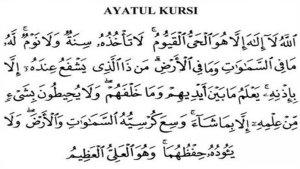 AYATUL KURSI
اللَّهُ لَا إِلَٰهَ إِلَّا هُوَ الْحَيُّ الْقَيُّومُ ۚ لَا تَأْخُذُهُ سِنَةٌ وَلَا نَوْمٌ ۚ لَهُ
مَا فِي السَّمَاوَاتِ وَمَا فِي الْأَرْضِ ۗ مَنْ ذَا الَّذِي يَشْفَعُ عِنْدَهُ إِلَّا
بِإِذْنِهِ ۚ يَعْلَمُ مَا بَيْنَ أَيْدِيهِمْ وَمَا خَلْفَهُمْ ۖ وَلَا يُحِيطُونَ بِشَيْءٍ
مِنْ عِلْمِهِ إِلَّا بِمَا شَاءَ ۚ وَسِعَ كُرْسِيُّهُ السَّمَاوَاتِ وَالْأَرْضَ ۖ وَلَا
يَئُودُهُ حِفْظُهُمَا ۚ وَهُوَ الْعَلِيُّ الْعَظِيمُ